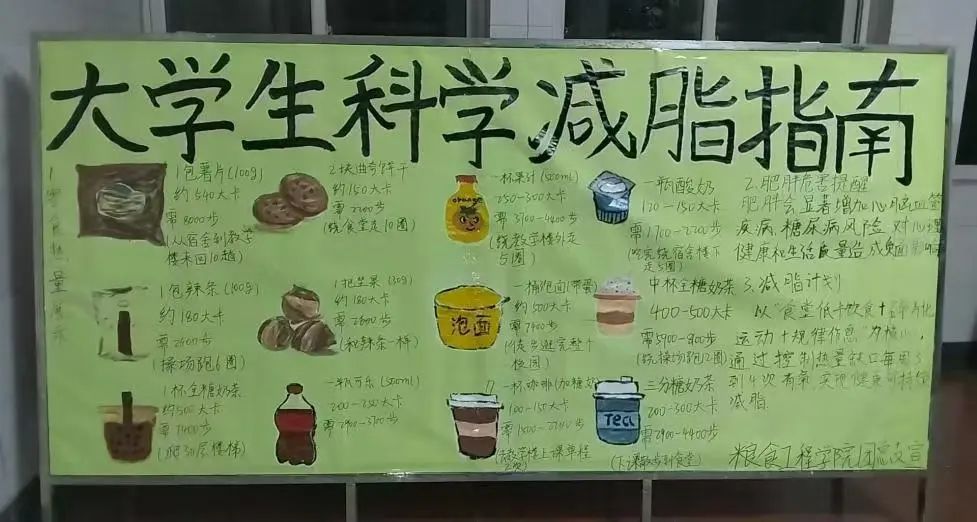 大学生科学减脂指南
1.零食热量展示
1包薯片(100g)
约540大卡
需8000步
(从宿舍到教学
楼来回10趟)
2块曲奇饼干
约150大卡
需2200步
(绕食堂走10圈)
一杯果汁(500ml)
250-300大卡
需3700-4400步
(绕教学楼外走
5圈)
orange
一瓶酸奶
120-150大卡
需1700-2200步
(吃完绕宿舍楼下
走5圈)
1包辣条(100g)
约180大卡
需2600步
(操场跑6圈)
1把坚果(30g)
约180大卡
需2600步
(和辣条一样)
泡面
一桶泡面(带蛋)
约500大卡
需7400步
(徒步逛完整个
校园)
中杯全糖奶茶
400-500大卡
需5900-7400步
(绕操场跑12圈)
1杯全糖奶茶
约500大卡
需7400步
(爬30层楼梯)
一瓶可乐(500ml)
200-250大卡
需2900-3700步
一杯咖啡(加糖奶)
100-150大卡
需1500-2200步
Tea
三分糖奶茶
200-300大卡
需2900-4400步
(下课散步到食堂)
2.肥胖危害提醒
肥胖会显著增加心脑血管
疾病、糖尿病风险,对心理
健康和生活质量造成负面影响
3.减脂计划
以“食堂低卡饮食+
运动+规律作息”为核心,
通过控制热量缺口每周3
到4次有氧,实现健康可持续
减脂
粮食工程学院团总支宣